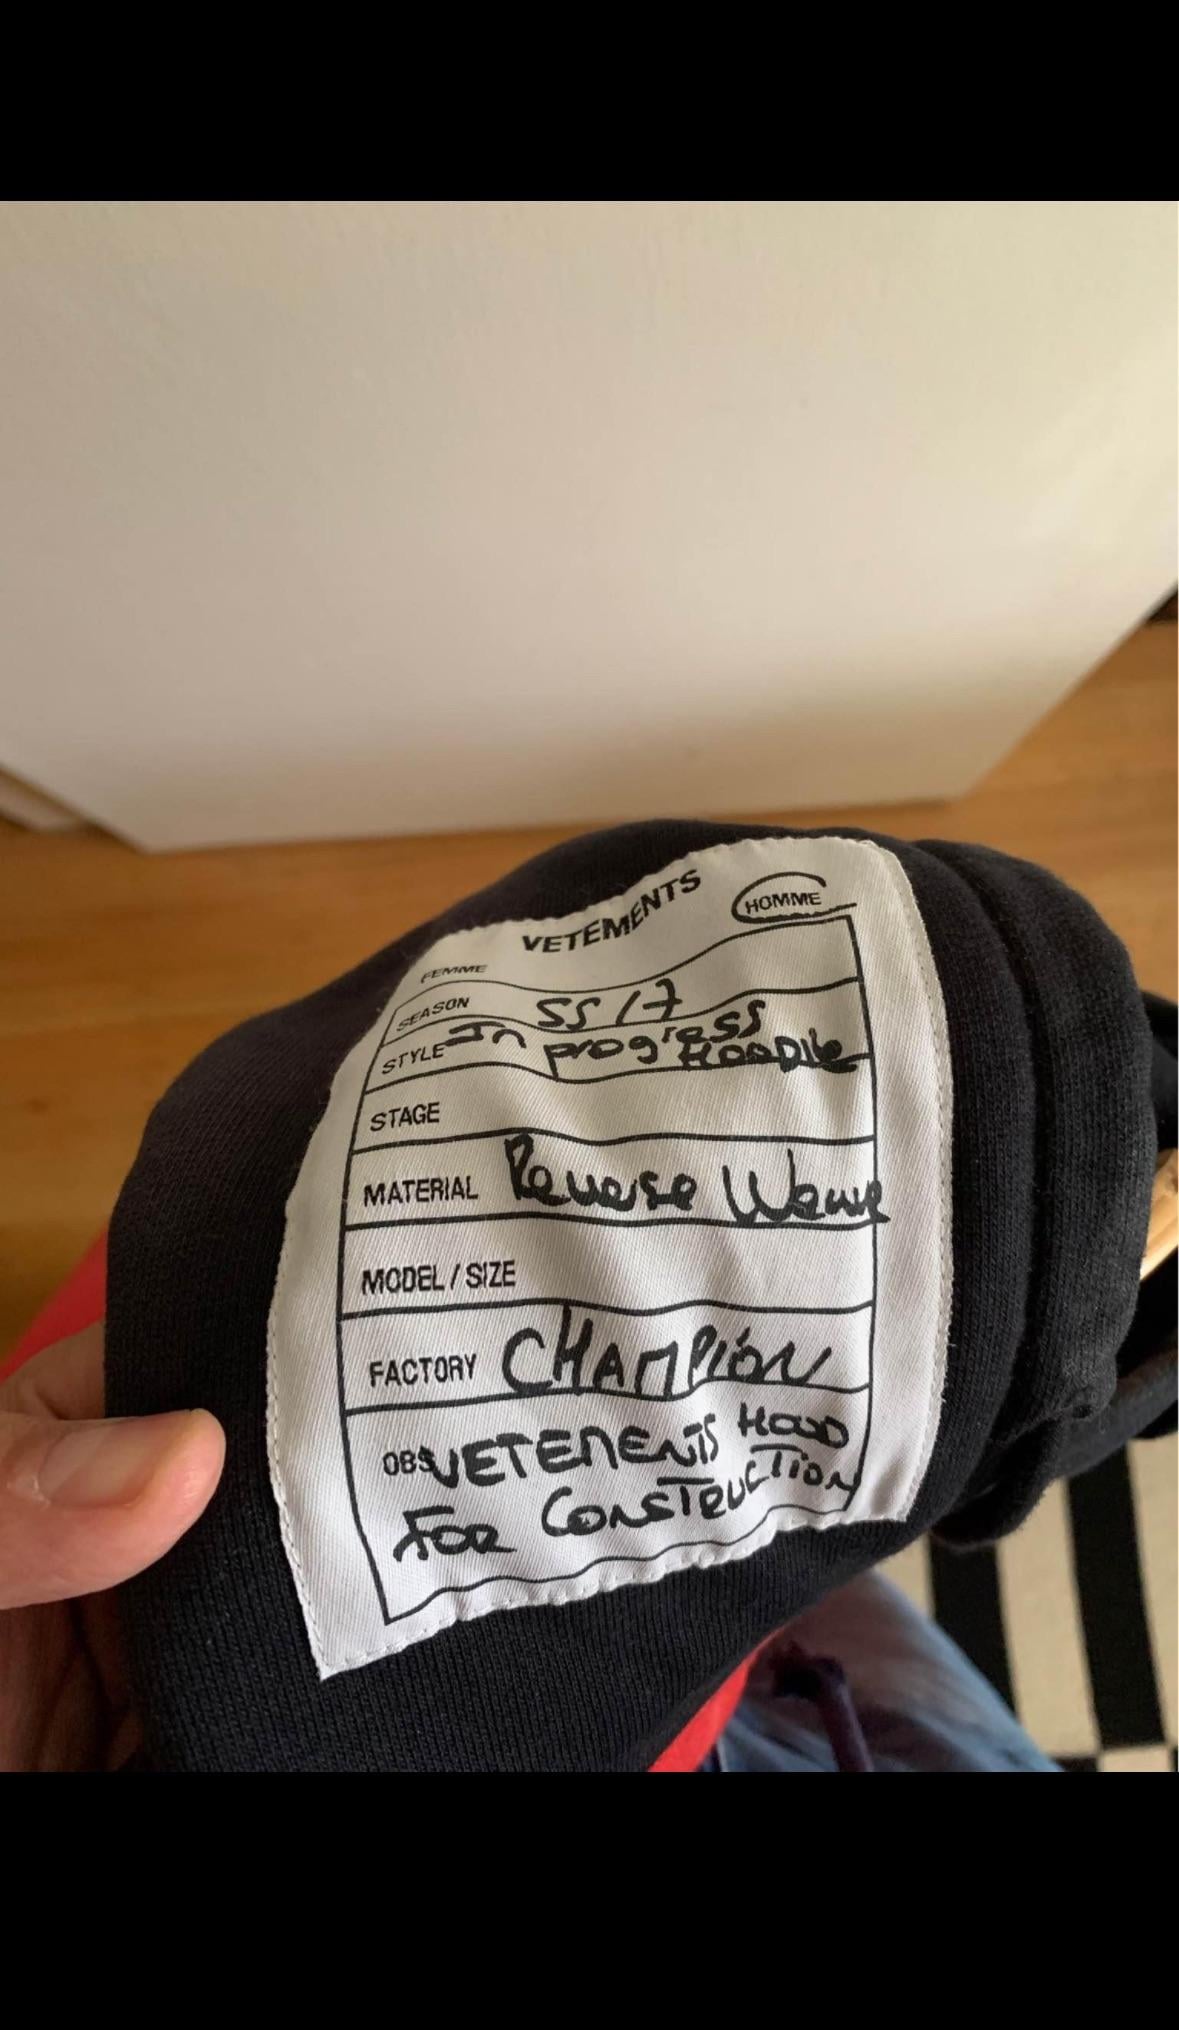 VETEMENTS
FEMME HOMME
SEASON SS17
STYLE In progress
HOODIE
STAGE
MATERIAL Reverse Weave
MODEL / SIZE
FACTORY CHAMPION
OBS VETEMENTS HOOD
FOR CONSTRUCTION